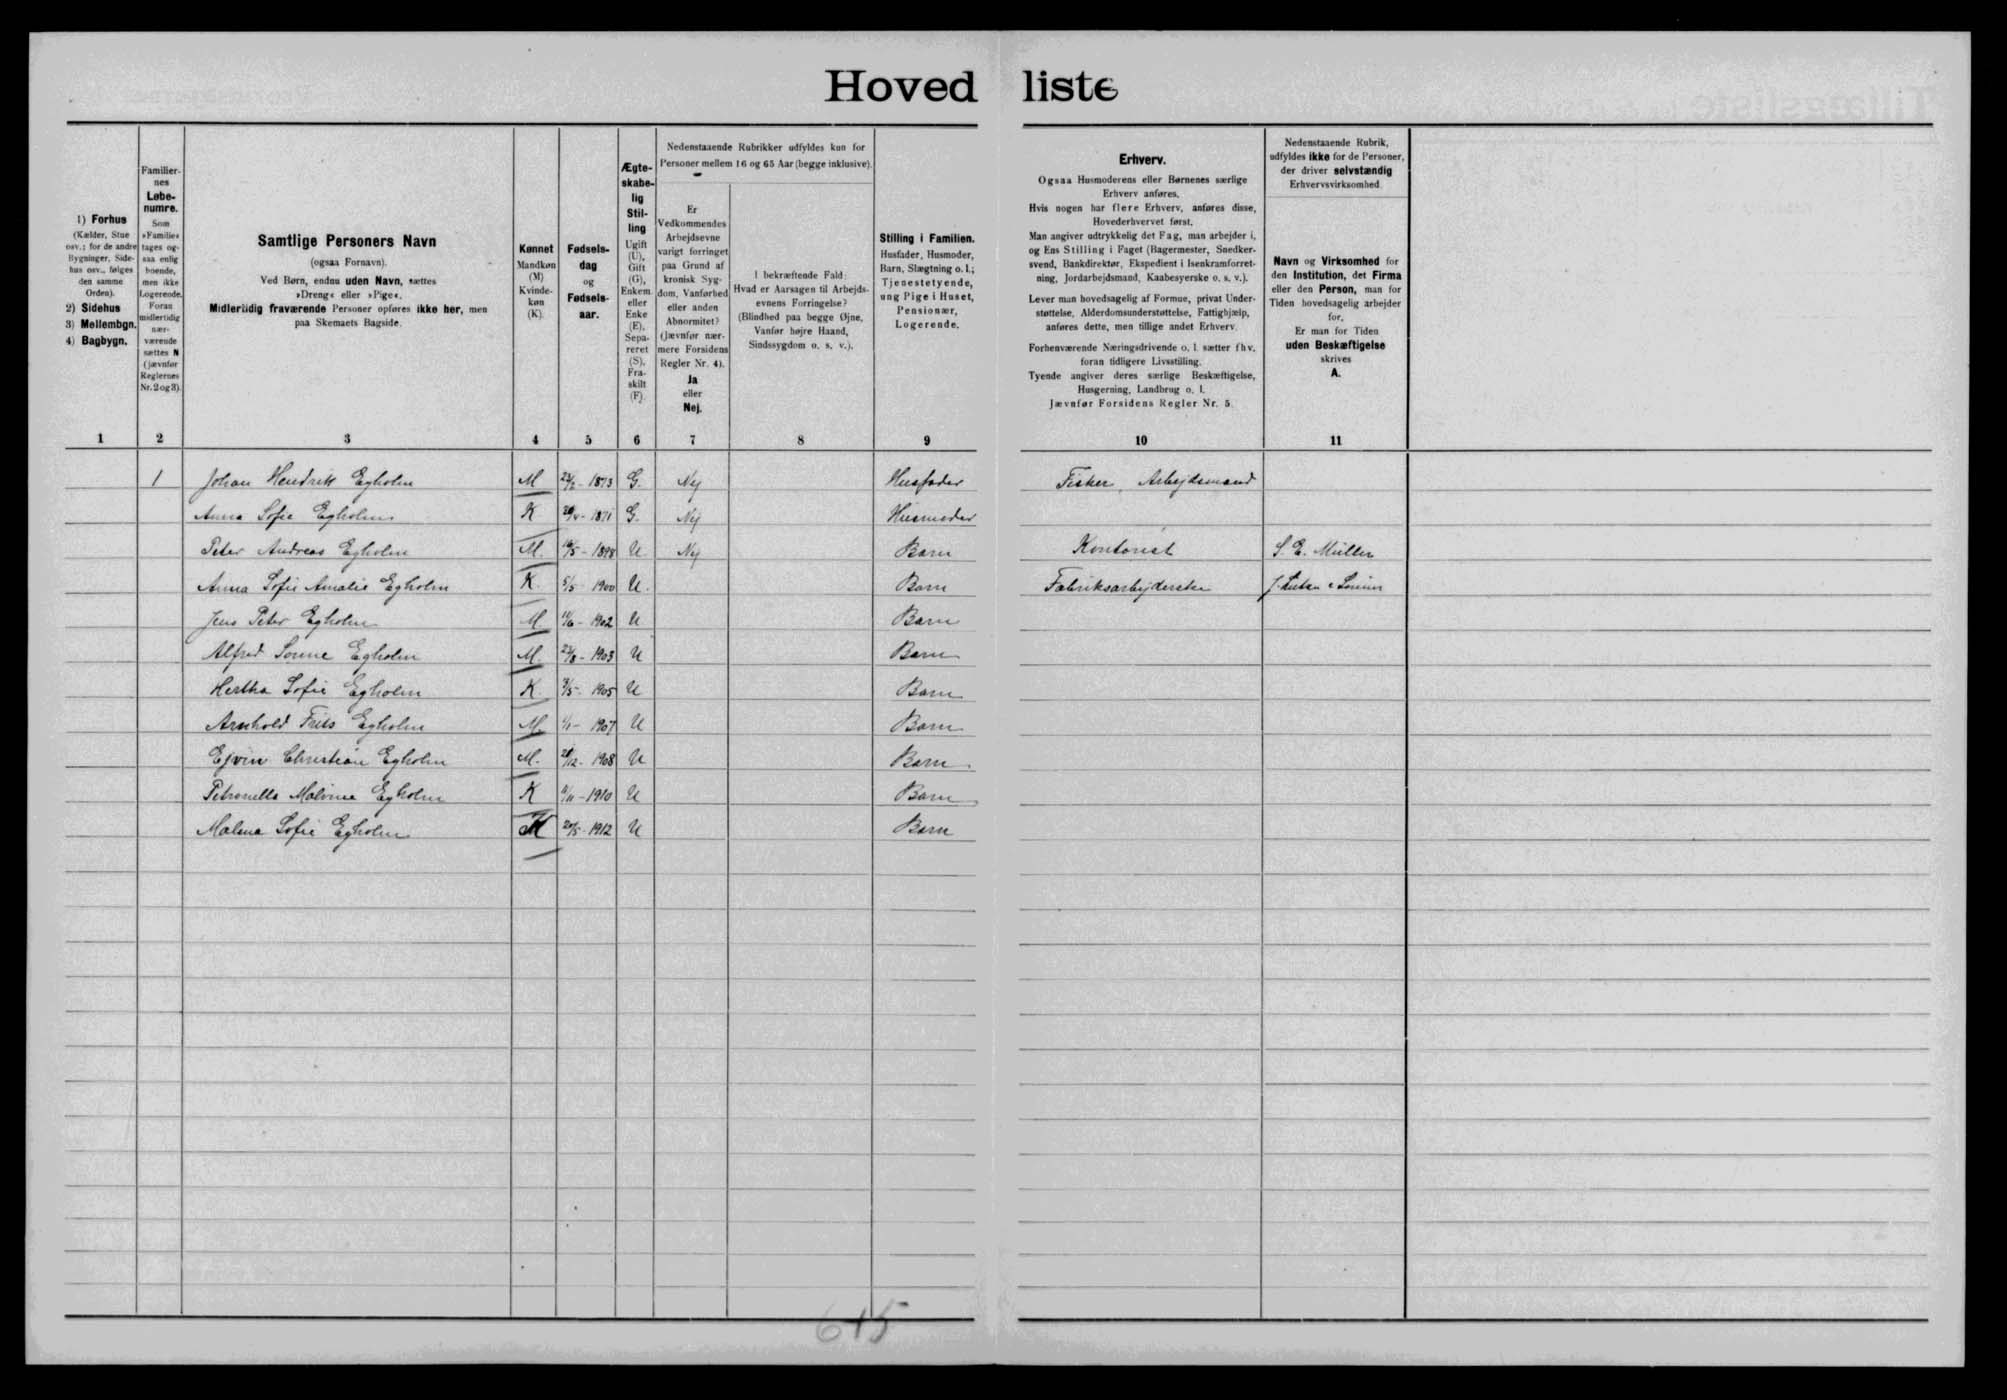 Hovedliste
1) Forhus
(Kælder, Stue
osv.; for de andre
Bygninger, Side-
hus osv., følges
den samme
Orden).
2) Sidehus
3) Mellembgn.
4) Bagbygn.
1
Familier-
nes
Løbe-
numre.
Som
»Familie«
tages og-
saa enlig
boende,
men ikke
Logerende.
Foran
midlertidig
nær-
værende
sættes N
(jævnfør
Reglernes
Nr. 2 og 3).
2
Samtlige Personers Navn
(ogsaa Fornavn).
Ved Børn, endnu uden Navn, sættes
»Dreng« eller »Pige«.
Midlertidig fraværende Personer opføres ikke her, men
paa Skemaets Bagside.
3
Kønnet
Mandkøn
(M)
Kvinde-
køn
(K).
4
Fødsels-
dag
og
Fødsels-
aar.
5
Ægte-
skabe-
lig
Stil-
ling
Ugift
(U),
Gift
(G),
Enkem.
eller
Enke
(E),
Sepa-
reret
(S),
Fra-
skilt
(F).
6
Nedenstaaende Rubrikker udfyldes kun for
Personer mellem 16 og 65 Aar (begge inklusive).
Er
Vedkommendes
Arbejdsevne
varigt forringet
paa Grund af
kronisk Syg-
dom, Vanførhed
eller anden
Abnormitet?
(Jævnfør nær-
mere Forsidens
Regler Nr. 4).
Ja
eller
Nej.
7
I bekræftende Fald:
Hvad er Aarsagen til Arbejds-
evnens Forringelse?
(Blindhed paa begge Øjne,
Vanfør højre Haand,
Sindssygdom o. s. v.).
8
Stilling i Familien.
Husfader, Husmoder,
Barn, Slægtning o. l.;
Tjenestetyende,
ung Pige i Huset,
Pensionær,
Logerende.
9
Erhverv.
Ogsaa Husmoderens eller Børnenes særlige
Erhverv anføres.
Hvis nogen har flere Erhverv, anføres disse,
Hovederhvervet først.
Man angiver udtrykkelig det Fag, man arbejder i,
og Ens Stilling i Faget (Bagermester, Snedker-
svend, Bankdirektør, Ekspedient i Isenkramforret-
ning, Jordarbejdsmand, Kaabesyerske o. s. v.).
Lever man hovedsagelig af Formue, privat Under-
støttelse, Alderdomsunderstøttelse, Fattighjælp,
anføres dette, men tillige andet Erhverv.
Forhenværende Næringsdrivende o. l. sætter fhv.
foran tidligere Livsstilling.
Tyende angiver deres særlige Beskæftigelse,
Husgerning, Landbrug o. l.
Jævnfør Forsidens Regler Nr. 5.
10
Nedenstaaende Rubrik,
udfyldes ikke for de Personer,
der driver selvstændig
Erhvervsvirksomhed.
Navn og Virksomhed for
den Institution, det Firma
eller den Person, man for
Tiden hovedsagelig arbejder
for.
Er man for Tiden
uden Beskæftigelse
skrives
A.
11
1 Johan Hendrik Egholm M 1873 G. Nej Husfader Fisker, Arbejdsmand
Anna Sofie Egholm K 1871 G. Nej Husmoder
Peter Andreas Egholm M. 1898 U Nej Barn Kontorist S. E. Müller
Anna Sofie Amalie Egholm K. 5/5 - 1900 U. Barn Fabriksarbejderske
Jens Peter Egholm M. 11/6 - 1902 U Barn
Alfred Sonne Egholm M. 23/8 - 1903 U Barn
Hertha Sofie Egholm K 3/5 - 1905 U Barn
Arnhold Frits Egholm M. 1/1 - 1907 U Barn
Ejvin Christian Egholm M. 28/12 - 1908 U Barn
Petronella Malvine Egholm K 11/11 - 1910 U Barn
Malena Sofie Egholm K 20/5 - 1912 U Barn
615